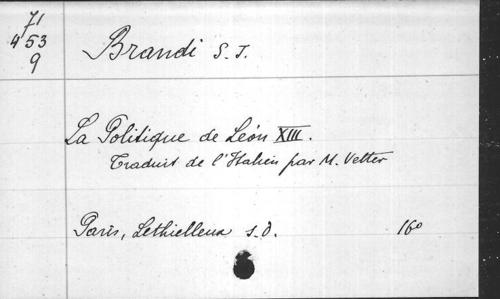 71
453
9
Brandi S. J.
La Politique de Léon XIII.
Traduit de l'Italien par M. Vetter
Paris, Lethielleux s.d. 16°